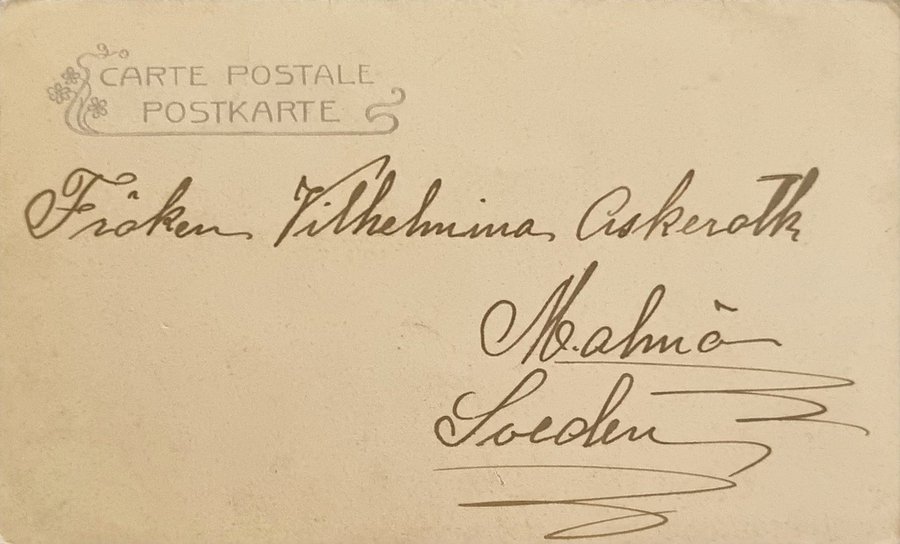 CARTE POSTALE
POSTKARTE
Fröken Vilhelmina Askeroth
Malmö
Sveden